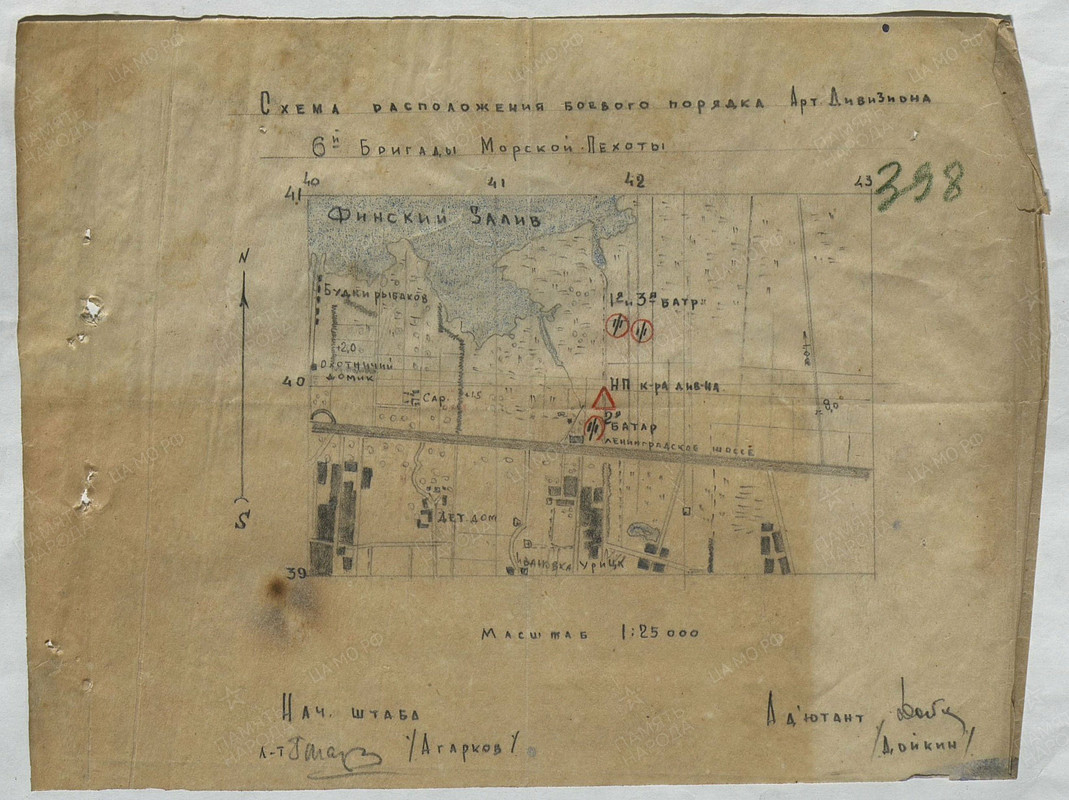 Схема расположения боевого порядка Арт Дивизиона
6й Бригады Морской Пехоты
398
40 41 42 43
41
Финский Залив
N
Будки рыбаков
1я и 3я батр.
+2,0
Охотничий
домик
40
НП к-ра див-на
Сар.
8,0
2я
батар
Ленинградское шоссе
S
Дет дом
Ивановка Урицк
39
Масштаб 1:25000
Нач. штаба
Ад'ютант
л-т /Агарков/
/Дойкин/
ЦАМО.РФ
ПАМЯТЬ НАРОДА